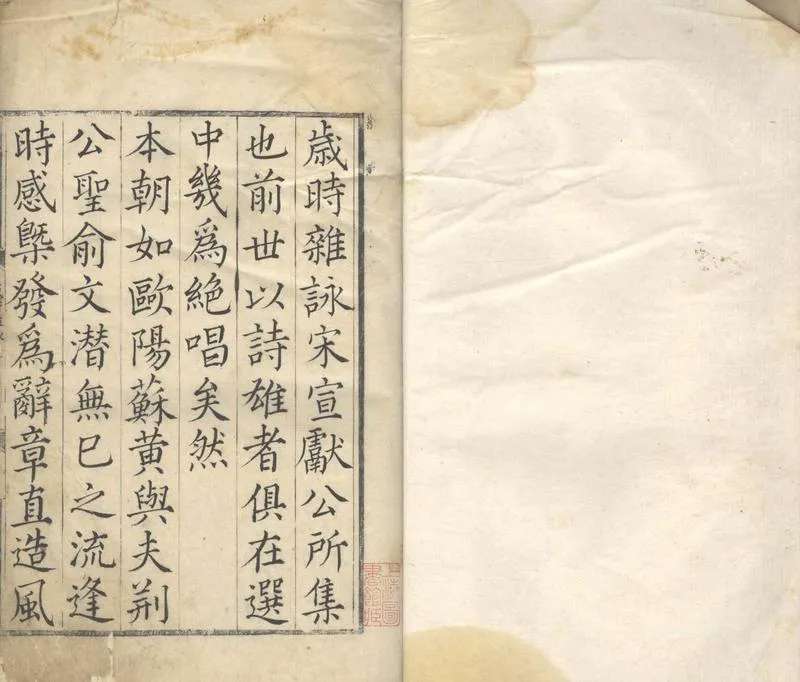 歳時雜詠宋宣獻公所集
也前世以詩雄者俱在選
中幾爲絶唱矣然
本朝如歐陽蘇黄與夫荆
公聖俞文潜無已之流逢
時感槩發爲辭章直造風
上海圖
書館藏